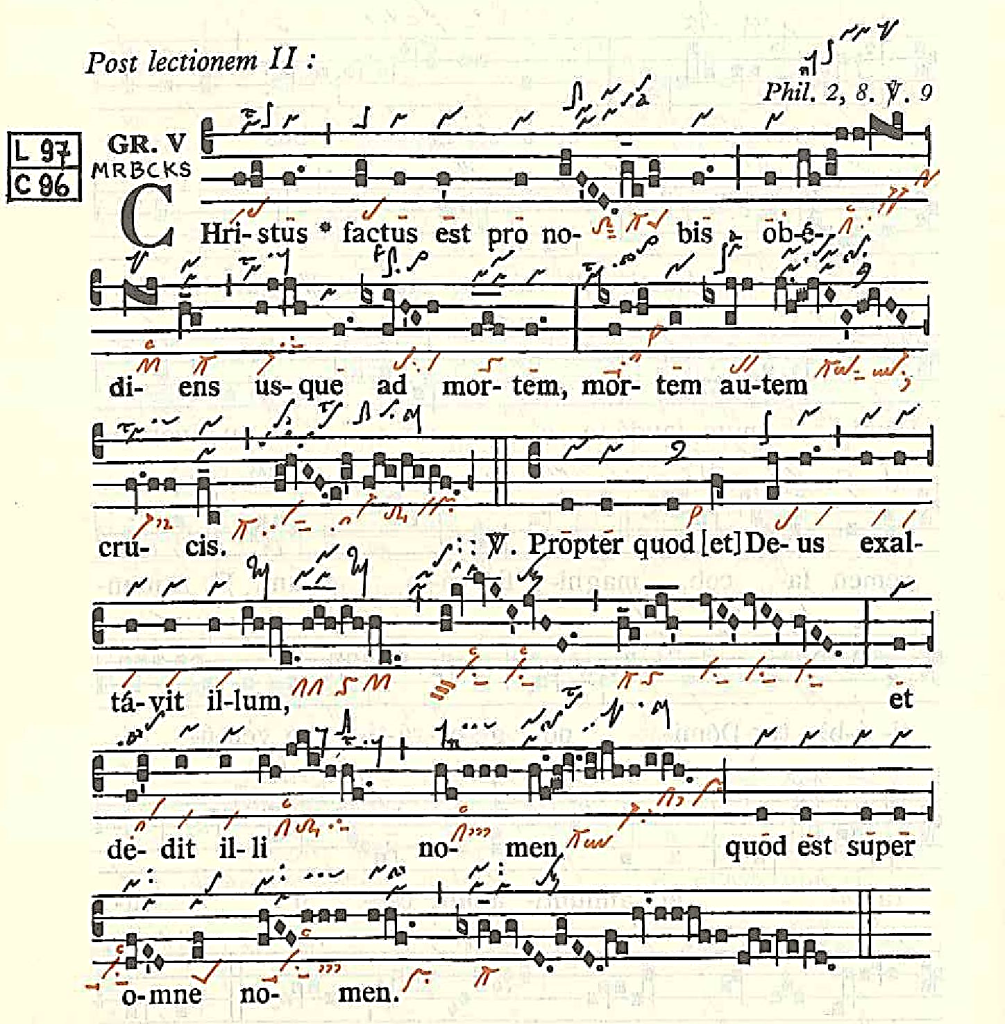 Post lectionem II :
Phil. 2, 8. ℣. 9
L 97
C 86
GR. V
MRBCKS
CHri-stūs * factūs ēst prō no- bīs ōb-é-
di- ens us-quē ad mor-tēm, mōr-tēm au-tem
crú- cis. ℣. Prōptēr quod [et] De-us exal-
tá-vit il-lum, ēt
dé-dit il-li no- men quōd ēst sūpēr
ō-mne nō- men.